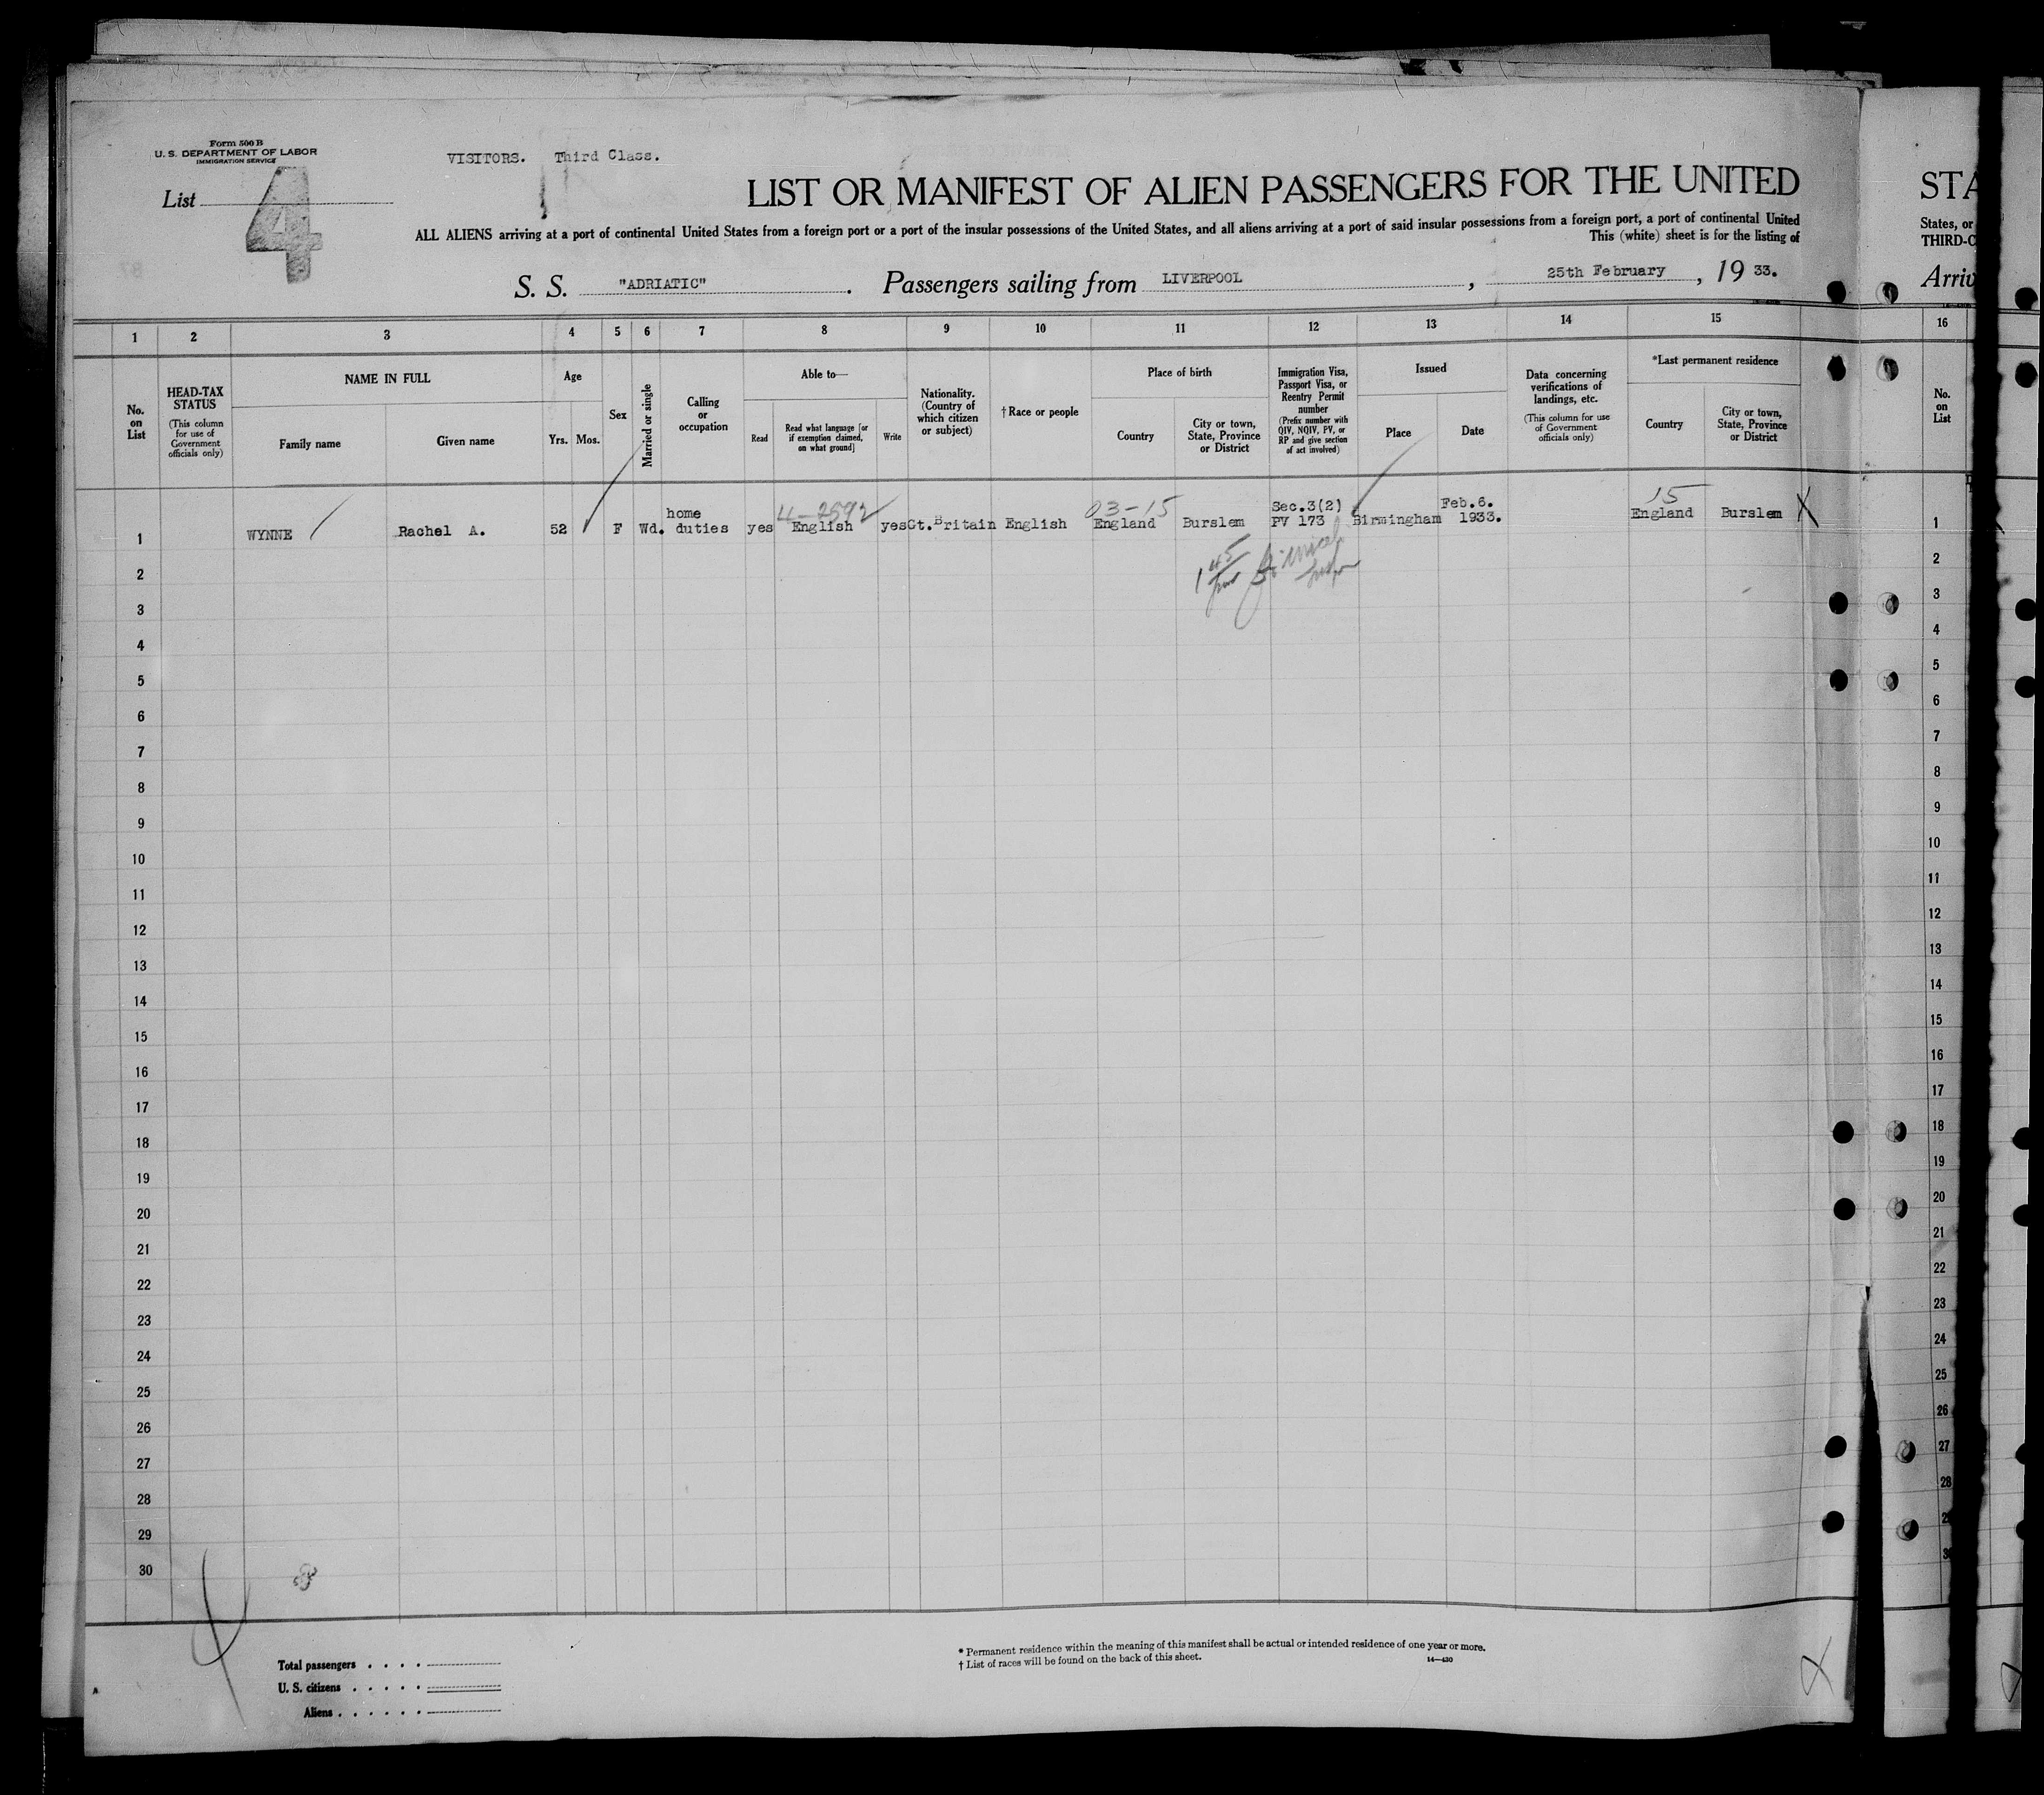 Form 500 B
U. S. DEPARTMENT OF LABOR
IMMIGRATION SERVICE
VISITORS. Third Class.
List 4
LIST OR MANIFEST OF ALIEN PASSENGERS FOR THE UNITED
ALL ALIENS arriving at a port of continental United States from a foreign port or a port of the insular possessions of the United States, and all aliens arriving at a port of said insular possessions from a foreign port, a port of continental United
This (white) sheet is for the listing of
S. S. "ADRIATIC". Passengers sailing from LIVERPOOL, 25th February, 19 33.
STA
States, or
THIRD-C
Arriv
1 2 3 4 5 6 7 8 9 10 11 12 13 14 15 16
No. on List
HEAD-TAX STATUS
(This column for use of Government officials only)
NAME IN FULL
Family name
Given name
Age
Yrs. Mos.
Sex
Married or single
Calling or occupation
Able to—
Read
Read what language [or if exemption claimed, on what ground]
Write
Nationality. (Country of which citizen or subject)
† Race or people
Place of birth
Country
City or town, State, Province or District
Immigration Visa, Passport Visa, or Reentry Permit number
(Prefix number with QIV, NQIV, PV, or RP and give section of act involved)
Issued
Place
Date
Data concerning verifications of landings, etc.
(This column for use of Government officials only)
*Last permanent residence
Country
City or town, State, Province or District
No. on List
4-2592 03-15 15
1 WYNNE Rachel A. 52 F Wd. home duties yes English yes Gt.Britain English England Burslem Sec.3(2) PV 173 Birmingham Feb.6. 1933. England Burslem X
1
2
3
4
5
6
7
8
9
10
11
12
13
14
15
16
17
18
19
20
21
22
23
24
25
26
27
28
29
30
1
2
3
4
5
6
7
8
9
10
11
12
13
14
15
16
17
18
19
20
21
22
23
24
25
26
27
28
8
Total passengers . . . .
U. S. citizens . . . . .
Aliens . . . . . .
* Permanent residence within the meaning of this manifest shall be actual or intended residence of one year or more.
† List of races will be found on the back of this sheet.
14—430
X